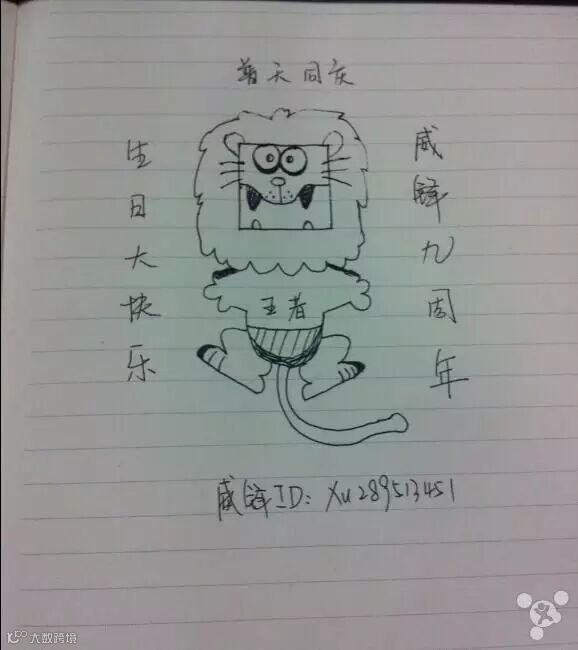 普天同庆
威锋九周年
生日大快乐
王者
威锋ID: xu289513451
大数跨境